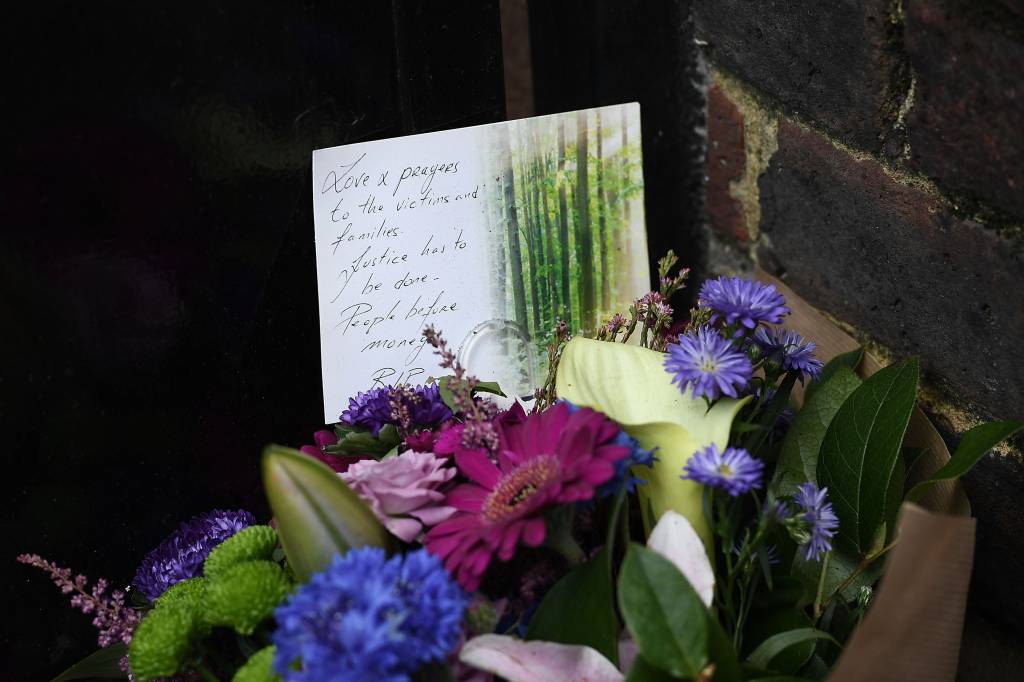 Love & prayers
to the victims and
families.
Justice has to
be done.
People before
money
RIP